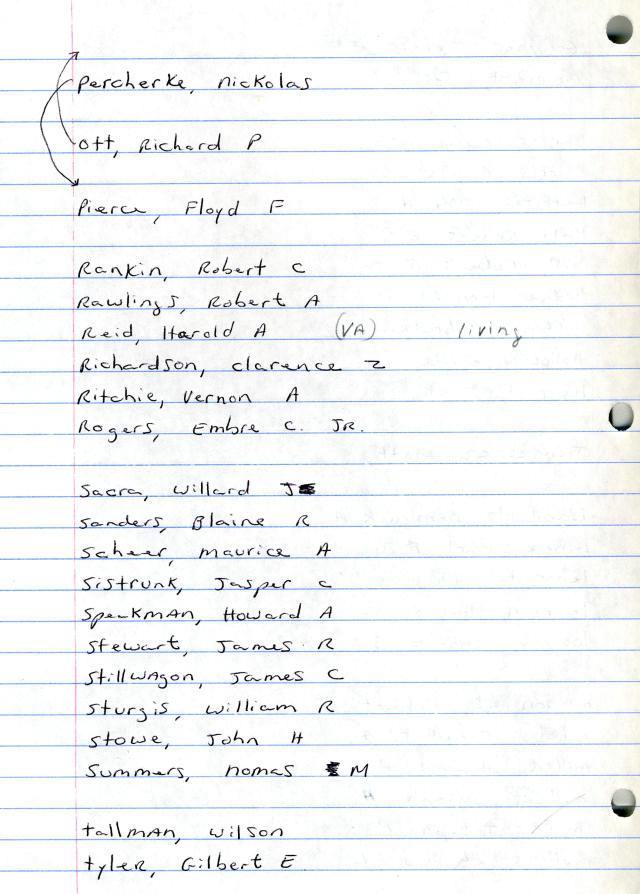 Percherke, Nickolas
Ott, Richard P
Pierce, Floyd F
Rankin, Robert C
Rawlings, Robert A
Reid, Harold A (VA) living
Richardson, Clarence Z
Ritchie, Vernon A
Rogers, Embre C. JR.
Sacra, Willard J
Sanders, Blaine R
Scheer, Maurice A
Sistrunk, Jasper C
Speakman, Howard A
Stewart, James R
Stillwagon, James C
Sturgis, William R
Stowe, John H
Summers, Nomas M
Tallman, Wilson
Tyler, Gilbert E